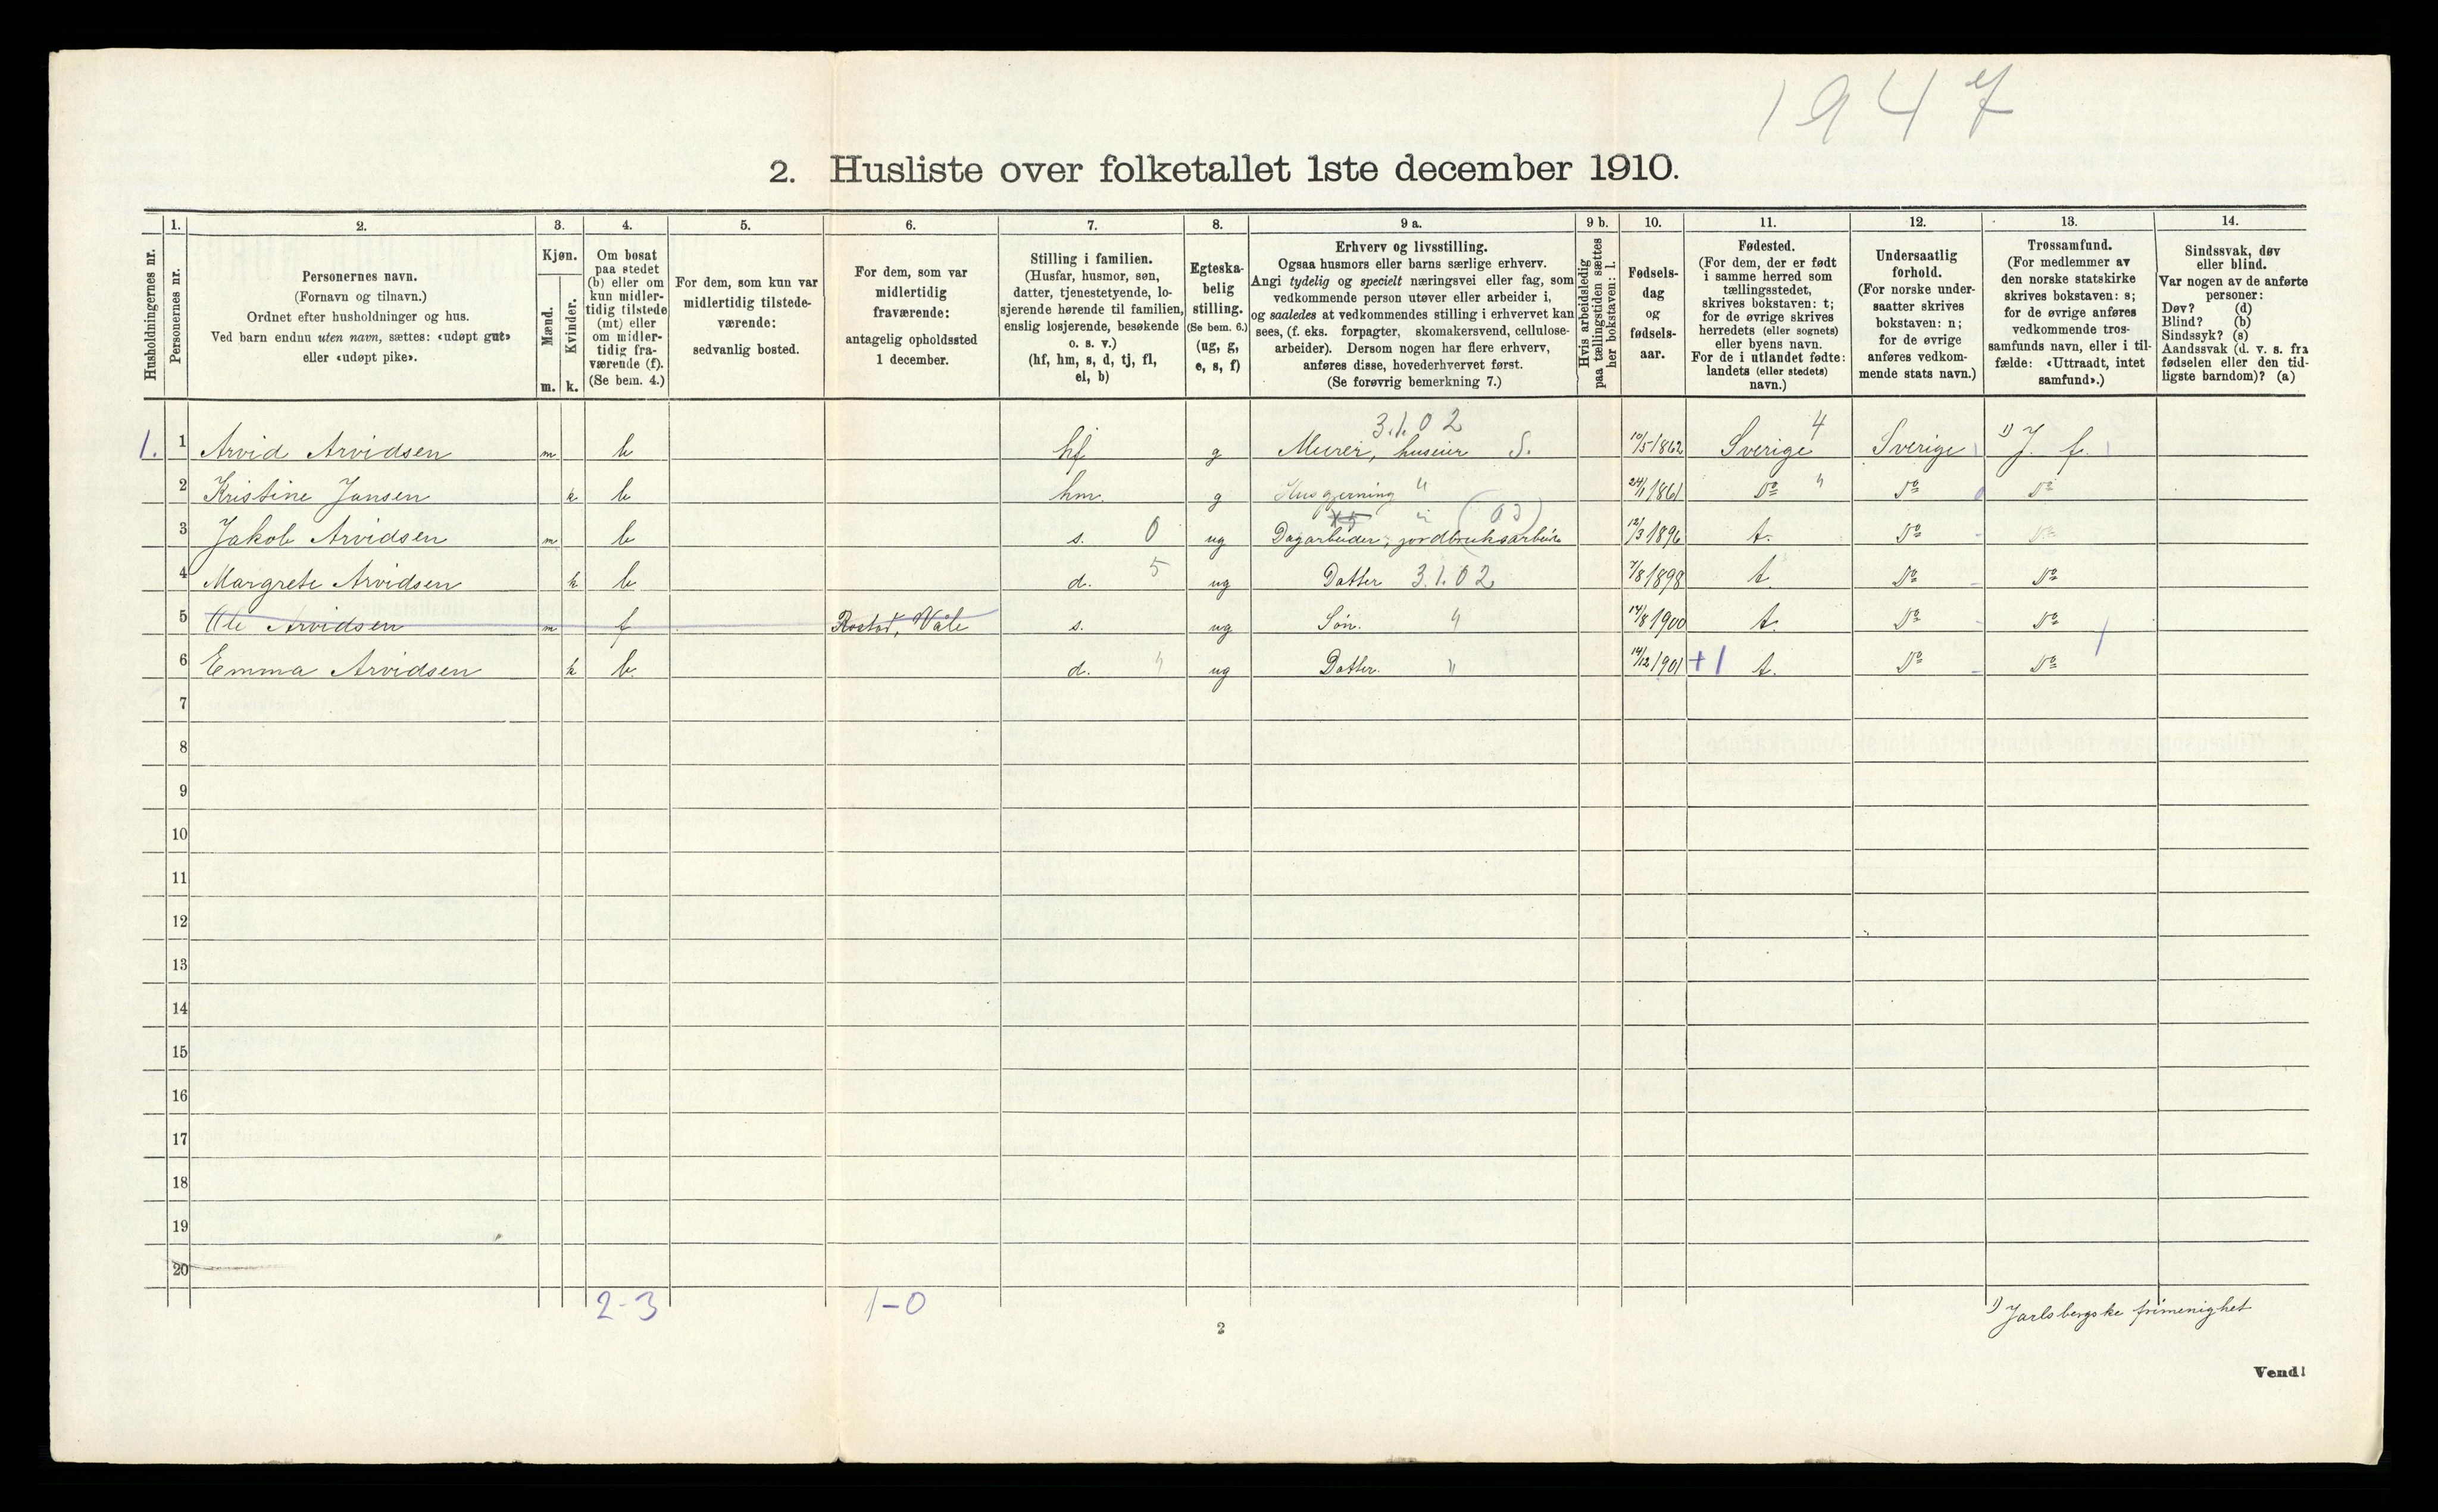 1947
2. Husliste over folketallet 1ste december 1910.
Husholdningernes nr.
1. Personernes nr.
2. Personernes navn.
(Fornavn og tilnavn.)
Ordnet efter husholdninger og hus.
Ved barn endnu uten navn, sættes: «udøpt gut»
eller «udøpt pike».
3. Kjøn.
Mænd. m.
Kvinder. k.
4. Om bosat
paa stedet
(b) eller om
kun midler-
tidig tilstede
(mt) eller
om midler-
tidig fra-
værende (f).
(Se bem. 4.)
5. For dem, som kun var
midlertidig tilstede-
værende:
sedvanlig bosted.
6. For dem, som var
midlertidig
fraværende:
antagelig opholdssted
1 december.
7. Stilling i familien.
(Husfar, husmor, søn,
datter, tjenestetyende, lo-
sjerende hørende til familien,
enslig losjerende, besøkende
o. s. v.)
(hf, hm, s, d, tj, fl,
el, b)
8. Egteska-
belig
stilling.
(Se bem. 6.)
(ug, g,
e, s, f)
9 a. Erhverv og livsstilling.
Ogsaa husmors eller barns særlige erhverv.
Angi tydelig og specielt næringsvei eller fag, som
vedkommende person utøver eller arbeider i,
og saaledes at vedkommendes stilling i erhvervet kan
sees, (f. eks. forpagter, skomakersvend, cellulose-
arbeider). Dersom nogen har flere erhverv,
anføres disse, hovederhvervet først.
(Se forøvrig bemerkning 7.)
9 b. Hvis arbeidsledig
paa tællingstiden sættes
her bokstaven: l.
10. Fødsels-
dag
og
fødsels-
aar.
11. Fødested.
(For dem, der er født
i samme herred som
tællingsstedet,
skrives bokstaven: t;
for de øvrige skrives
herredets (eller sognets)
eller byens navn.
For de i utlandet fødte:
landets (eller stedets)
navn.)
12. Undersaatlig
forhold.
(For norske under-
saatter skrives
bokstaven: n;
for de øvrige
anføres vedkom-
mende stats navn.)
13. Trossamfund.
(For medlemmer av
den norske statskirke
skrives bokstaven: s;
for de øvrige anføres
vedkommende tros-
samfunds navn, eller i til-
fælde: «Uttraadt, intet
samfund».)
14. Sindssvak, døv
eller blind.
Var nogen av de anførte
personer:
Døv? (d)
Blind? (b)
Sindssyk? (s)
Aandssvak (d. v. s. fra
fødselen eller den tid-
ligste barndom)? (a)
3.1.02 4
1. 1 Arvid Arvidsen m b hf g Murer, huseier S. 10/5 1862 Sverige Sverige 1) J. f.
2 Kristine Jansen k b hm. g Husgjerning " 24/1 1861 Do " Do Do
3 Jakob Arvidsen m b s. 0 ug Dagarbeider, jordbruksarbeide 12/3 1896 t. Do Do
4 Margrete Arvidsen k b d. 5 ug Datter 3.1.02 7/8 1898 t. Do Do
5 Ole Arvidsen m f Rostad, Våle s. ug Søn. " 14/8 1900 t. Do Do
6 Emma Arvidsen k b. d. " ug Datter. " 14/12 1901 +1 t. Do Do
7
8
9
10
11
12
13
14
15
16
17
18
19
20
2-3 1-0
1) Jarlsbergske frimenighet
2
Vend!